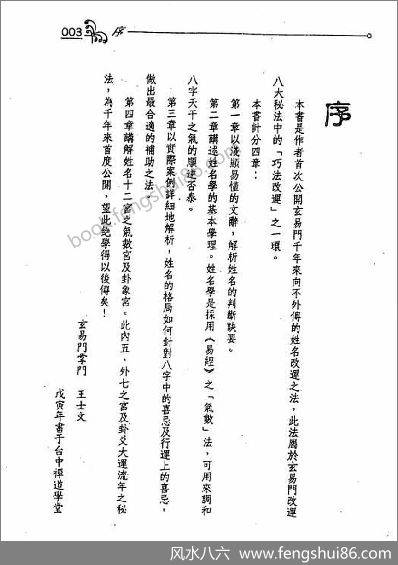 003 序
序
本書是作者首次公開玄易門千年來向不外傳的姓名改運之法，此法屬於玄易門改運
八大秘法中的「巧法改運」之一環。
本書計分四章：
第一章以淺顯易懂的文辭，解析姓名的判斷訣要。
第二章講述姓名學的基本學理。姓名學是採用《易經》之「氣數」法，可用來調和
八字天干之氣的順逆否泰。
第三章以實際案例詳細地解析，姓名的格局如何針對八字中的喜忌及行運上的喜忌，
做出最合適的補助之法。
第四章講解姓名十二宮之氣數宮及卦象宮。此內五、外七之宮及卦爻大運流年之秘
法，為千年來首度公開，望此絕學得以後傳矣！
玄易門掌門 王士文
戊寅年書于台中禪道學堂
book.fengshui86.com
风水八六 www.fengshui86.com